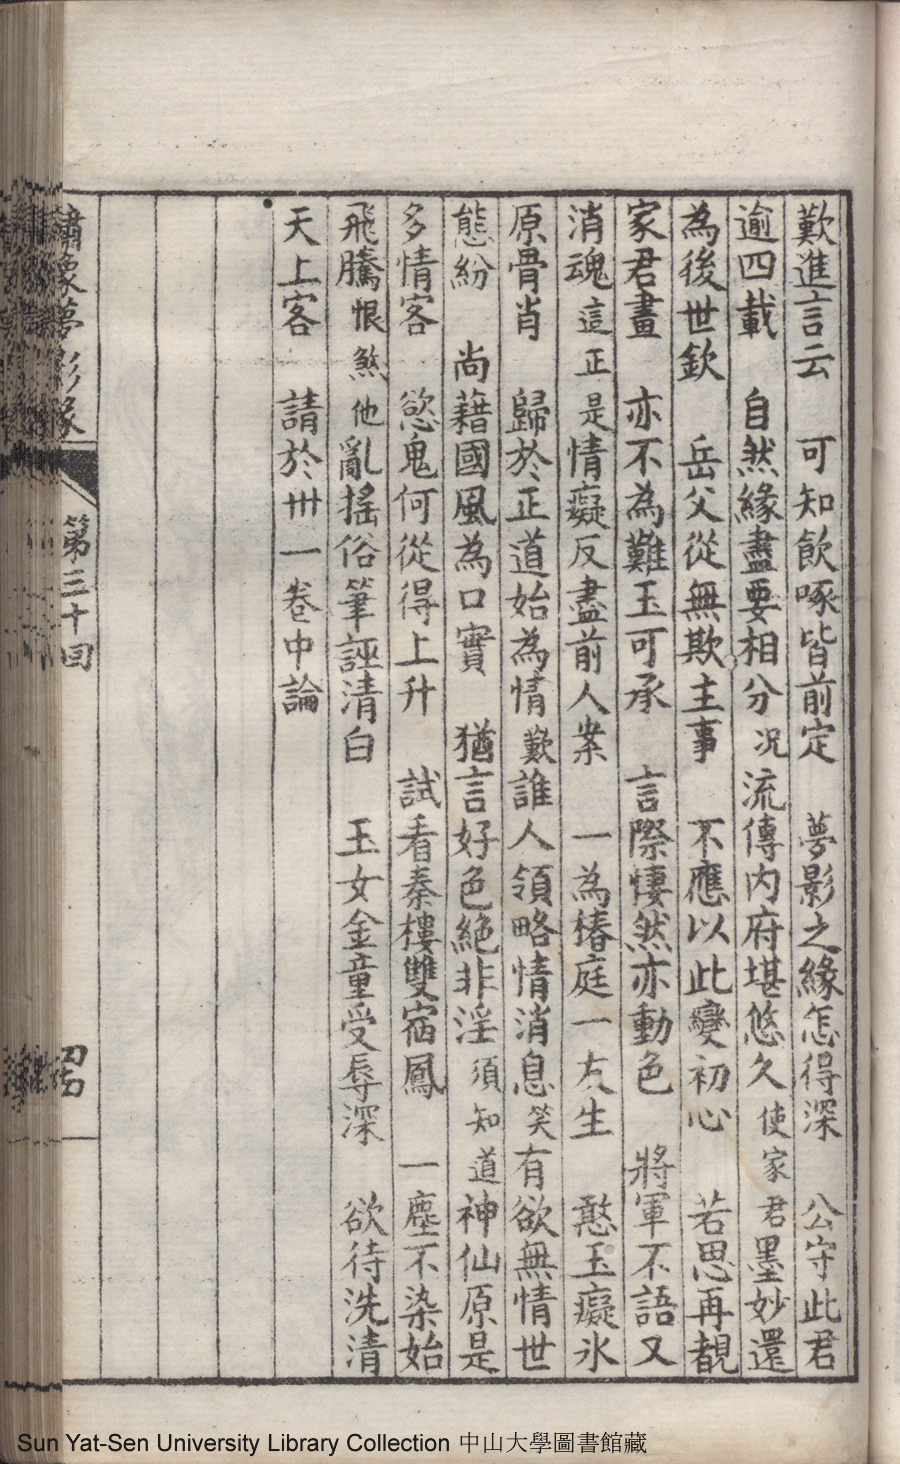 歎進言云　可知飲啄皆前定　夢影之緣怎得深　公守此君
逾四載　自然緣盡要相分況流傳內府堪悠久使家君墨妙還
為後世欽　岳父從無欺主事　不應以此變初心　若思再覩
家君畫　亦不為難玉可承　言際悽然亦動色　將軍不語又
消魂這正是情癡反盡前人案　一為椿庭一友生　憨玉癡氷
原骨肖　歸於正道始為情歎誰人領略情消息笑有欲無情世
態紛　尚藉國風為口實　猶言好色絕非淫須知道神仙原是
多情客　慾鬼何從得上升　試看秦樓雙宿鳳　一塵不染始
飛騰恨煞他亂搖俗筆誣清白　玉女金童受辱深　欲待洗清
天上客　請於卅一卷中論
繡像夢影緣
第三十回
四
Sun Yat-Sen University Library Collection 中山大學圖書館藏